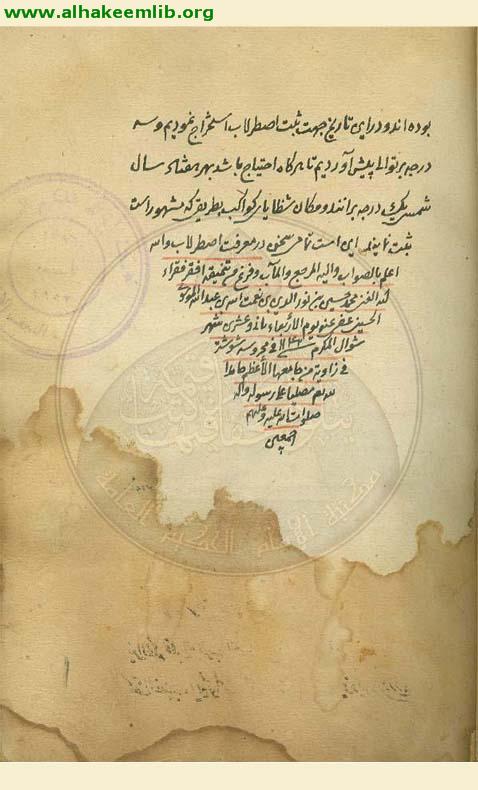 www.alhakeemlib.org
بوده اند و در این تاریخ جهت ثبت اصطرلاب استخراج نمودیم و سه
درجه بر توالی پیش آوردیم تا هرگاه احتیاج باشد بهر هفتاد سال
شمسی یک درجه برانند و مکان شظایا کواکب بطریق که مشهور است
ثبت نمایند این است تمامی سخن در معرفت اصطرلاب والله
اعلم بالصواب والیه المرجع والمآب وفرغ من تنمیقه افقر فقراء
الله الغنی محمد حسین بن نور الدین بن نعمت الله بن عبدالله الموسوی
الحسینی عفی عنه یوم الأربعاء ثانی وعشرین شهر
شوال المکرم فی محروسه شوشتر
فی زاویة من جامعها الأعظم حامدا
لله مصلیا علی رسوله وآله
صلوات الله علیه وعلیهم
اجمعین
مكتبة الإمام الحكيم العامة